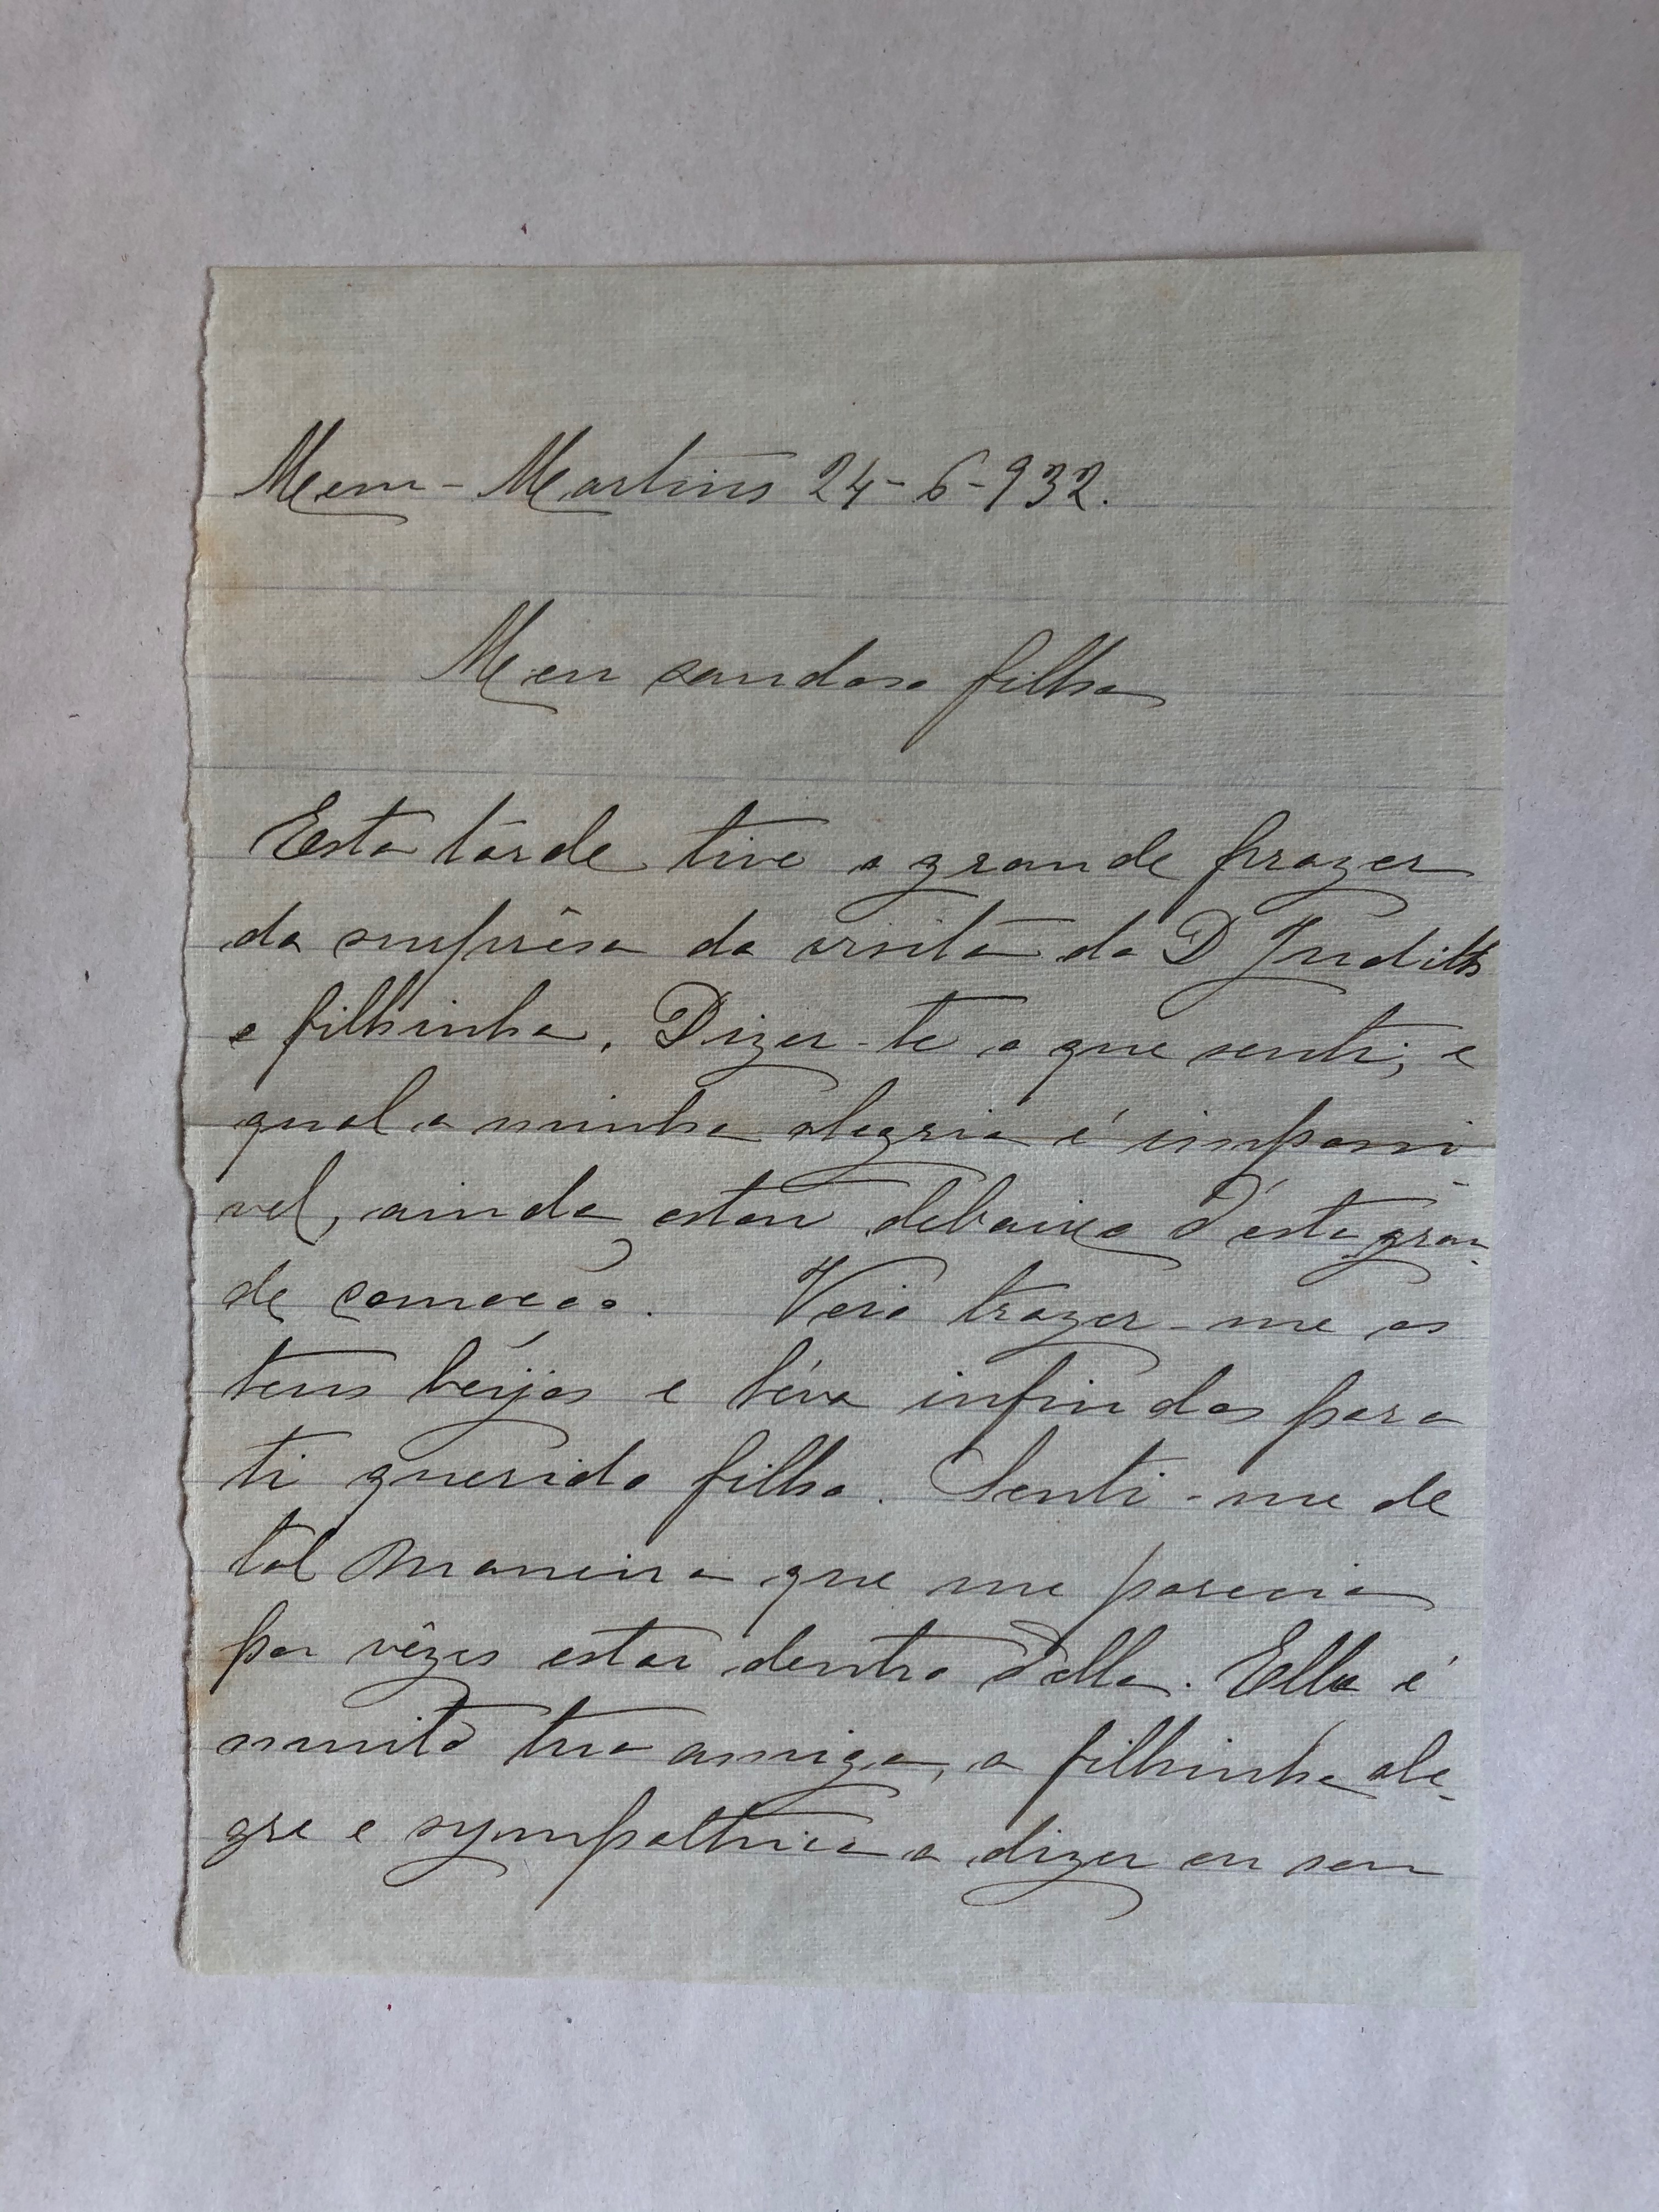 Mem-Martins 24-6-932.
Meu saudoso filho
Esta tarde tive o grande prazer
da surprêsa da visita da D Judith
e filhinha. Dizer-te o que senti, e
qual a minha alegria é impossi
vel, ainda estou debaixo d'esta gran-
de comoção. Veio trazer-me os
teus beijos e léva infindos para
ti querido filho. Senti-me de
tal maneira que me parecia
por vêzes estar dentro d'ella. Ella é
muito tua amiga, a filhinha ale-
gre e sympathica a dizer eu sou